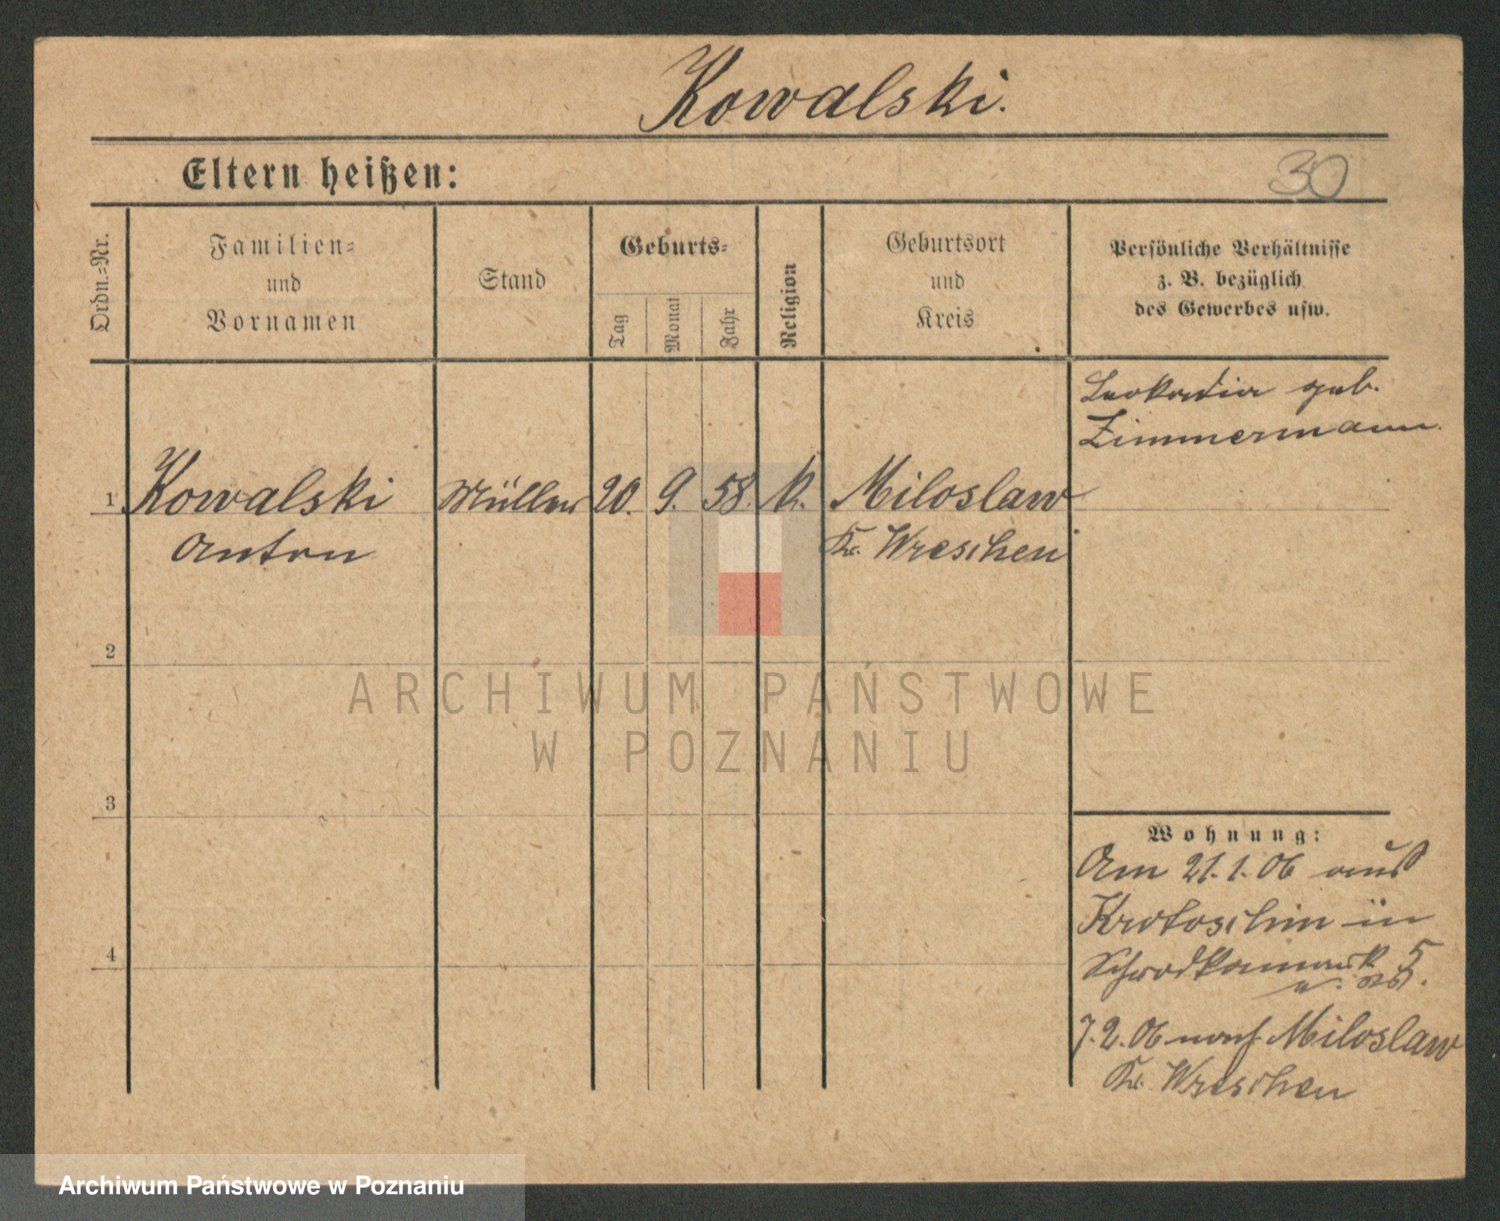 Kowalski.
Eltern heißen:
30
Ordn.=Nr.
Familien=
und
Vornamen
Stand
Geburts=
Tag
Monat
Jahr
Religion
Geburtsort
und
Kreis
Persönliche Verhältnisse
z. B. bezüglich
des Gewerbes usw.
Leokadia geb.
Zimmermann.
1 Kowalski Müller 20. 9. 58. k. Miloslaw
Anton Kr. Wreschen
2
3
4
Wohnung:
Am 21.1.06 aus
Krotoschin in
5
7.2.06 nach Miloslaw
Kr. Wreschen
ARCHIWUM PAŃSTWOWE
W POZNANIU
Archiwum Państwowe w Poznaniu